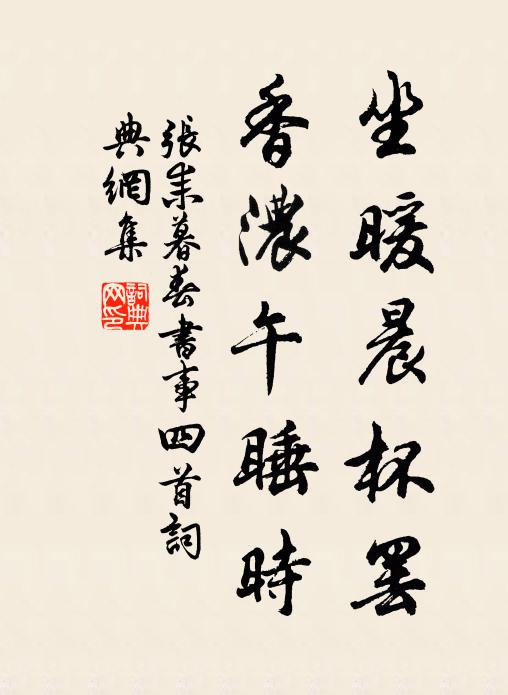 坐暖晨杯罢
香濃午睡時
張耒暮春書事四首詞
典網集
詞典網印